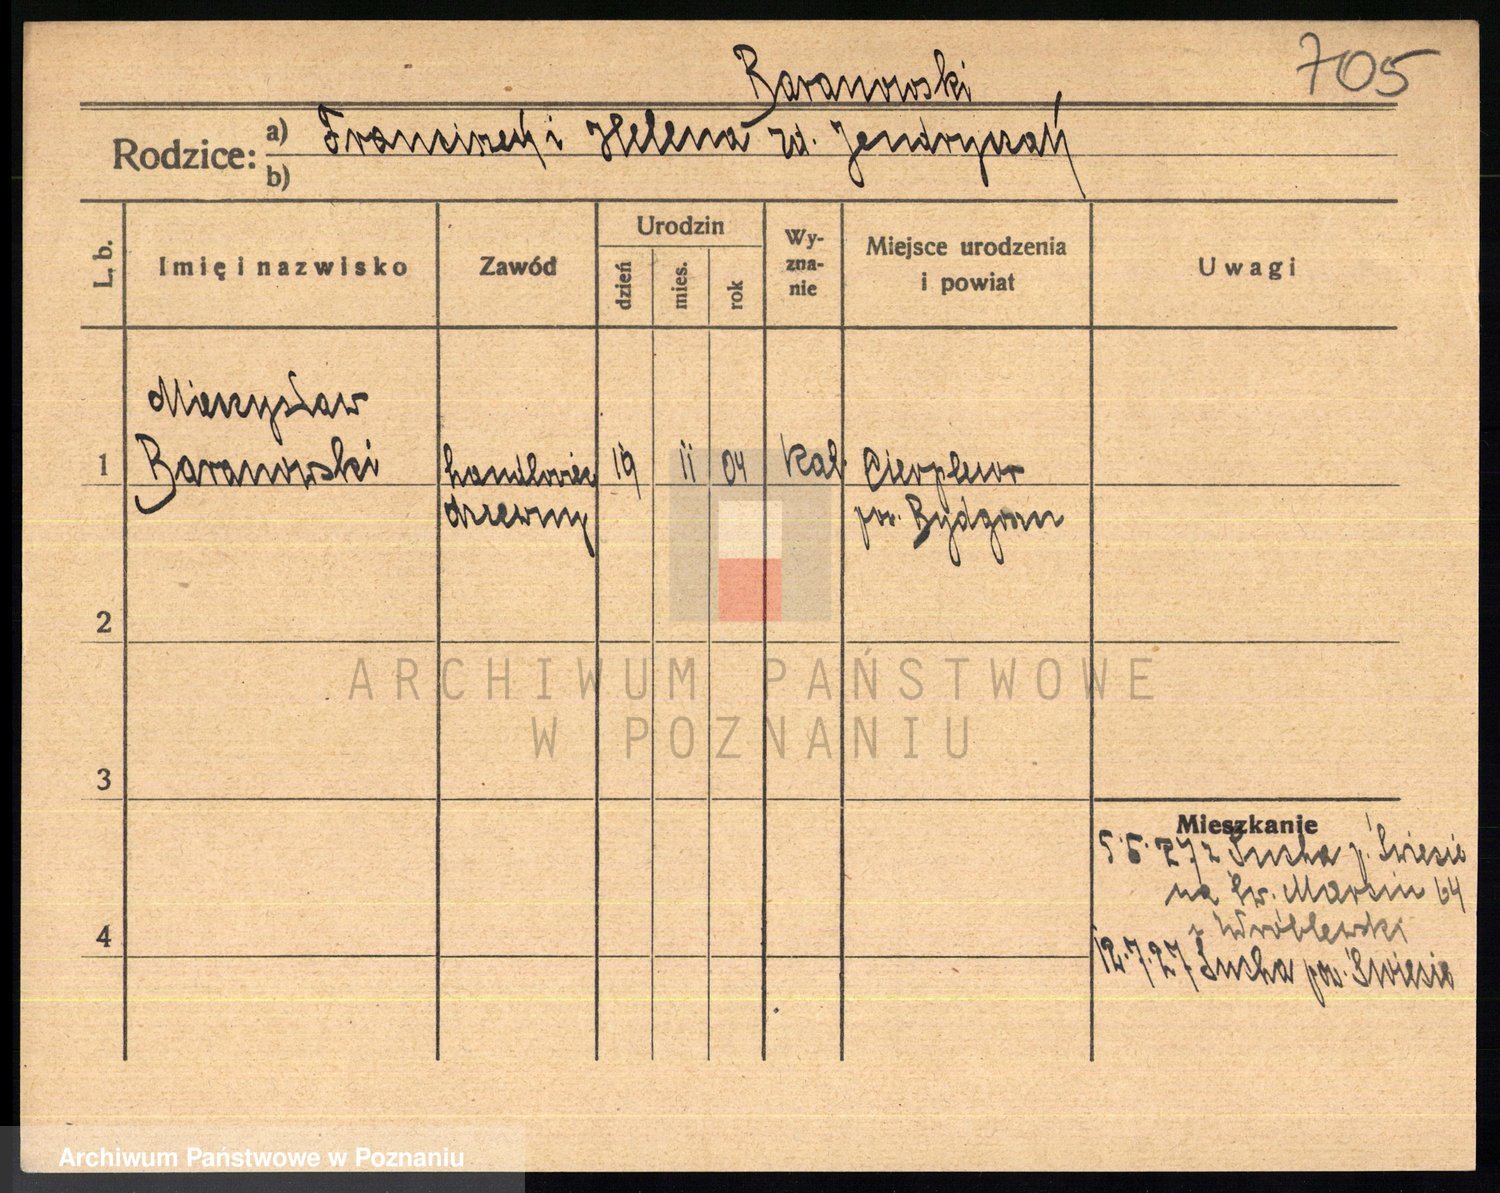 705
Baranowski
Rodzice: a) Franciszek i Helena zd. Jendryczak
b)
L. b.
Imię i nazwisko
Zawód
Urodzin
dzień
mies.
rok
Wy-
zna-
nie
Miejsce urodzenia
i powiat
Uwagi
Mieczysław
1 Baranowski handlowiec 19 II 04 Kat
drzewny pow. Bydgoszcz
2
ARCHIWUM PAŃSTWOWE
W POZNANIU
3
Mieszkanie
5.6.27 z Sucha p. Świecie
na Św. Marcin 64
z Wróblewski
4
12.7.27 Sucha pow. Świecie
Archiwum Państwowe w Poznaniu